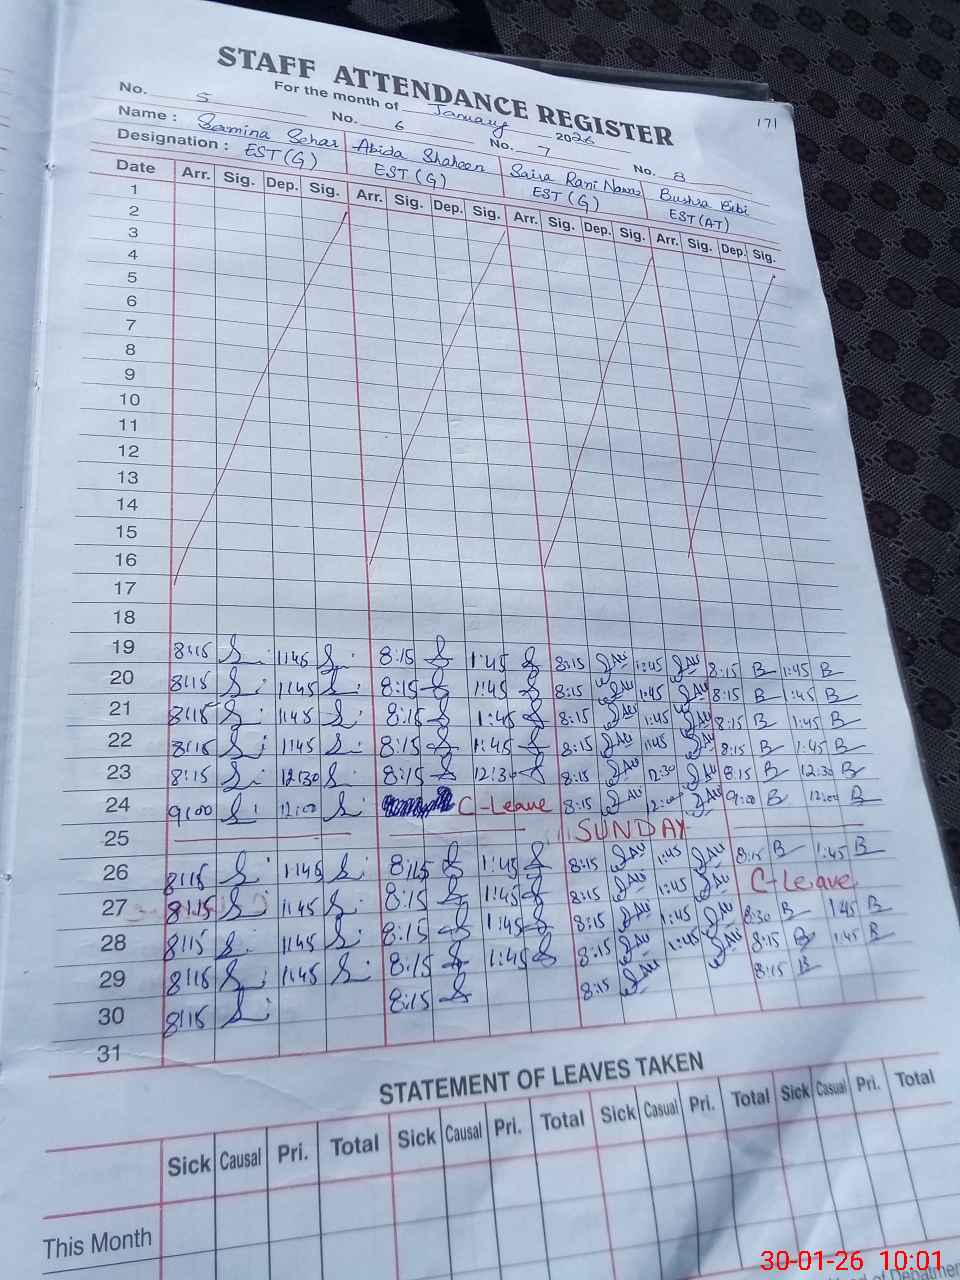 171
STAFF ATTENDANCE REGISTER
For the month of January 2026
No. 5 No. 6 No. 7 No. 8
Name : Samina Sehar Abida Shaheen Saira Rani Nawaz Bushra Bibi
Designation : EST(G) EST(G) EST(G) EST(AT)
Date Arr. Sig. Dep. Sig. Arr. Sig. Dep. Sig. Arr. Sig. Dep. Sig. Arr. Sig. Dep. Sig.
1
2
3
4
5
6
7
8
9
10
11
12
13
14
15
16
17
18
19 8:15 1:45 8:15 1:45 8:15 1:45 8:15 B 1:45 B
20 8:15 1:45 8:15 1:45 8:15 1:45 8:15 B 1:45 B
21 8:15 1:45 8:15 1:45 8:15 1:45 8:15 B 1:45 B
22 8:15 1:45 8:15 1:45 8:15 1:45 8:15 B 1:45 B
23 8:15 12:30 8:15 12:30 8:15 12:30 8:15 B 12:30 B
24 9:00 12:00 C-Leave 8:15 12:00 9:00 B 12:00 B
25 SUNDAY
26 8:15 1:45 8:15 1:45 8:15 1:45 8:15 B 1:45 B
27 8:15 1:45 8:15 1:45 8:15 1:45 C-Leave
28 8:15 1:45 8:15 1:45 8:15 1:45 8:30 B 1:45 B
29 8:15 1:45 8:15 1:45 8:15 1:45 8:15 B 1:45 B
30 8:15 8:15 8:15 8:15 B
31
STATEMENT OF LEAVES TAKEN
Sick Causal Pri. Total Sick Causal Pri. Total Sick Casual Pri. Total Sick Casual Pri. Total
This Month
30-01-26 10:01